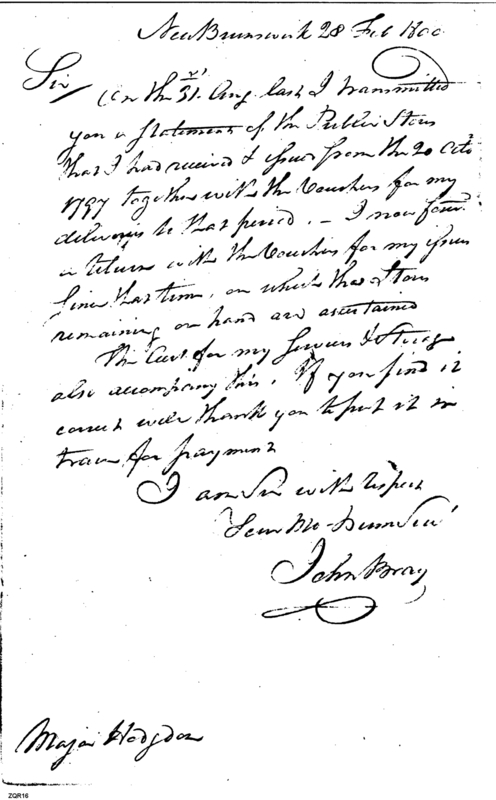 New Brunswick 28 Feb 1800
Sir
On the 31st Aug last I transmitted
you a Statement of the Public Stores
that I had received & issued from the 20 Octo
1797 together with the Vouchers for my
deliverys to that period. - I now forwd
a return with the Vouchers for my issues
Since that time, on which the Stores
remaining on hand are ascertained
The Acct for my Services & Storage
also accompany this. If you find it
correct will thank you to put it in
train for payment
I am Sir with respect
Your Mo Humb Sert
John Bray
Major Hodgdon
ZQR16